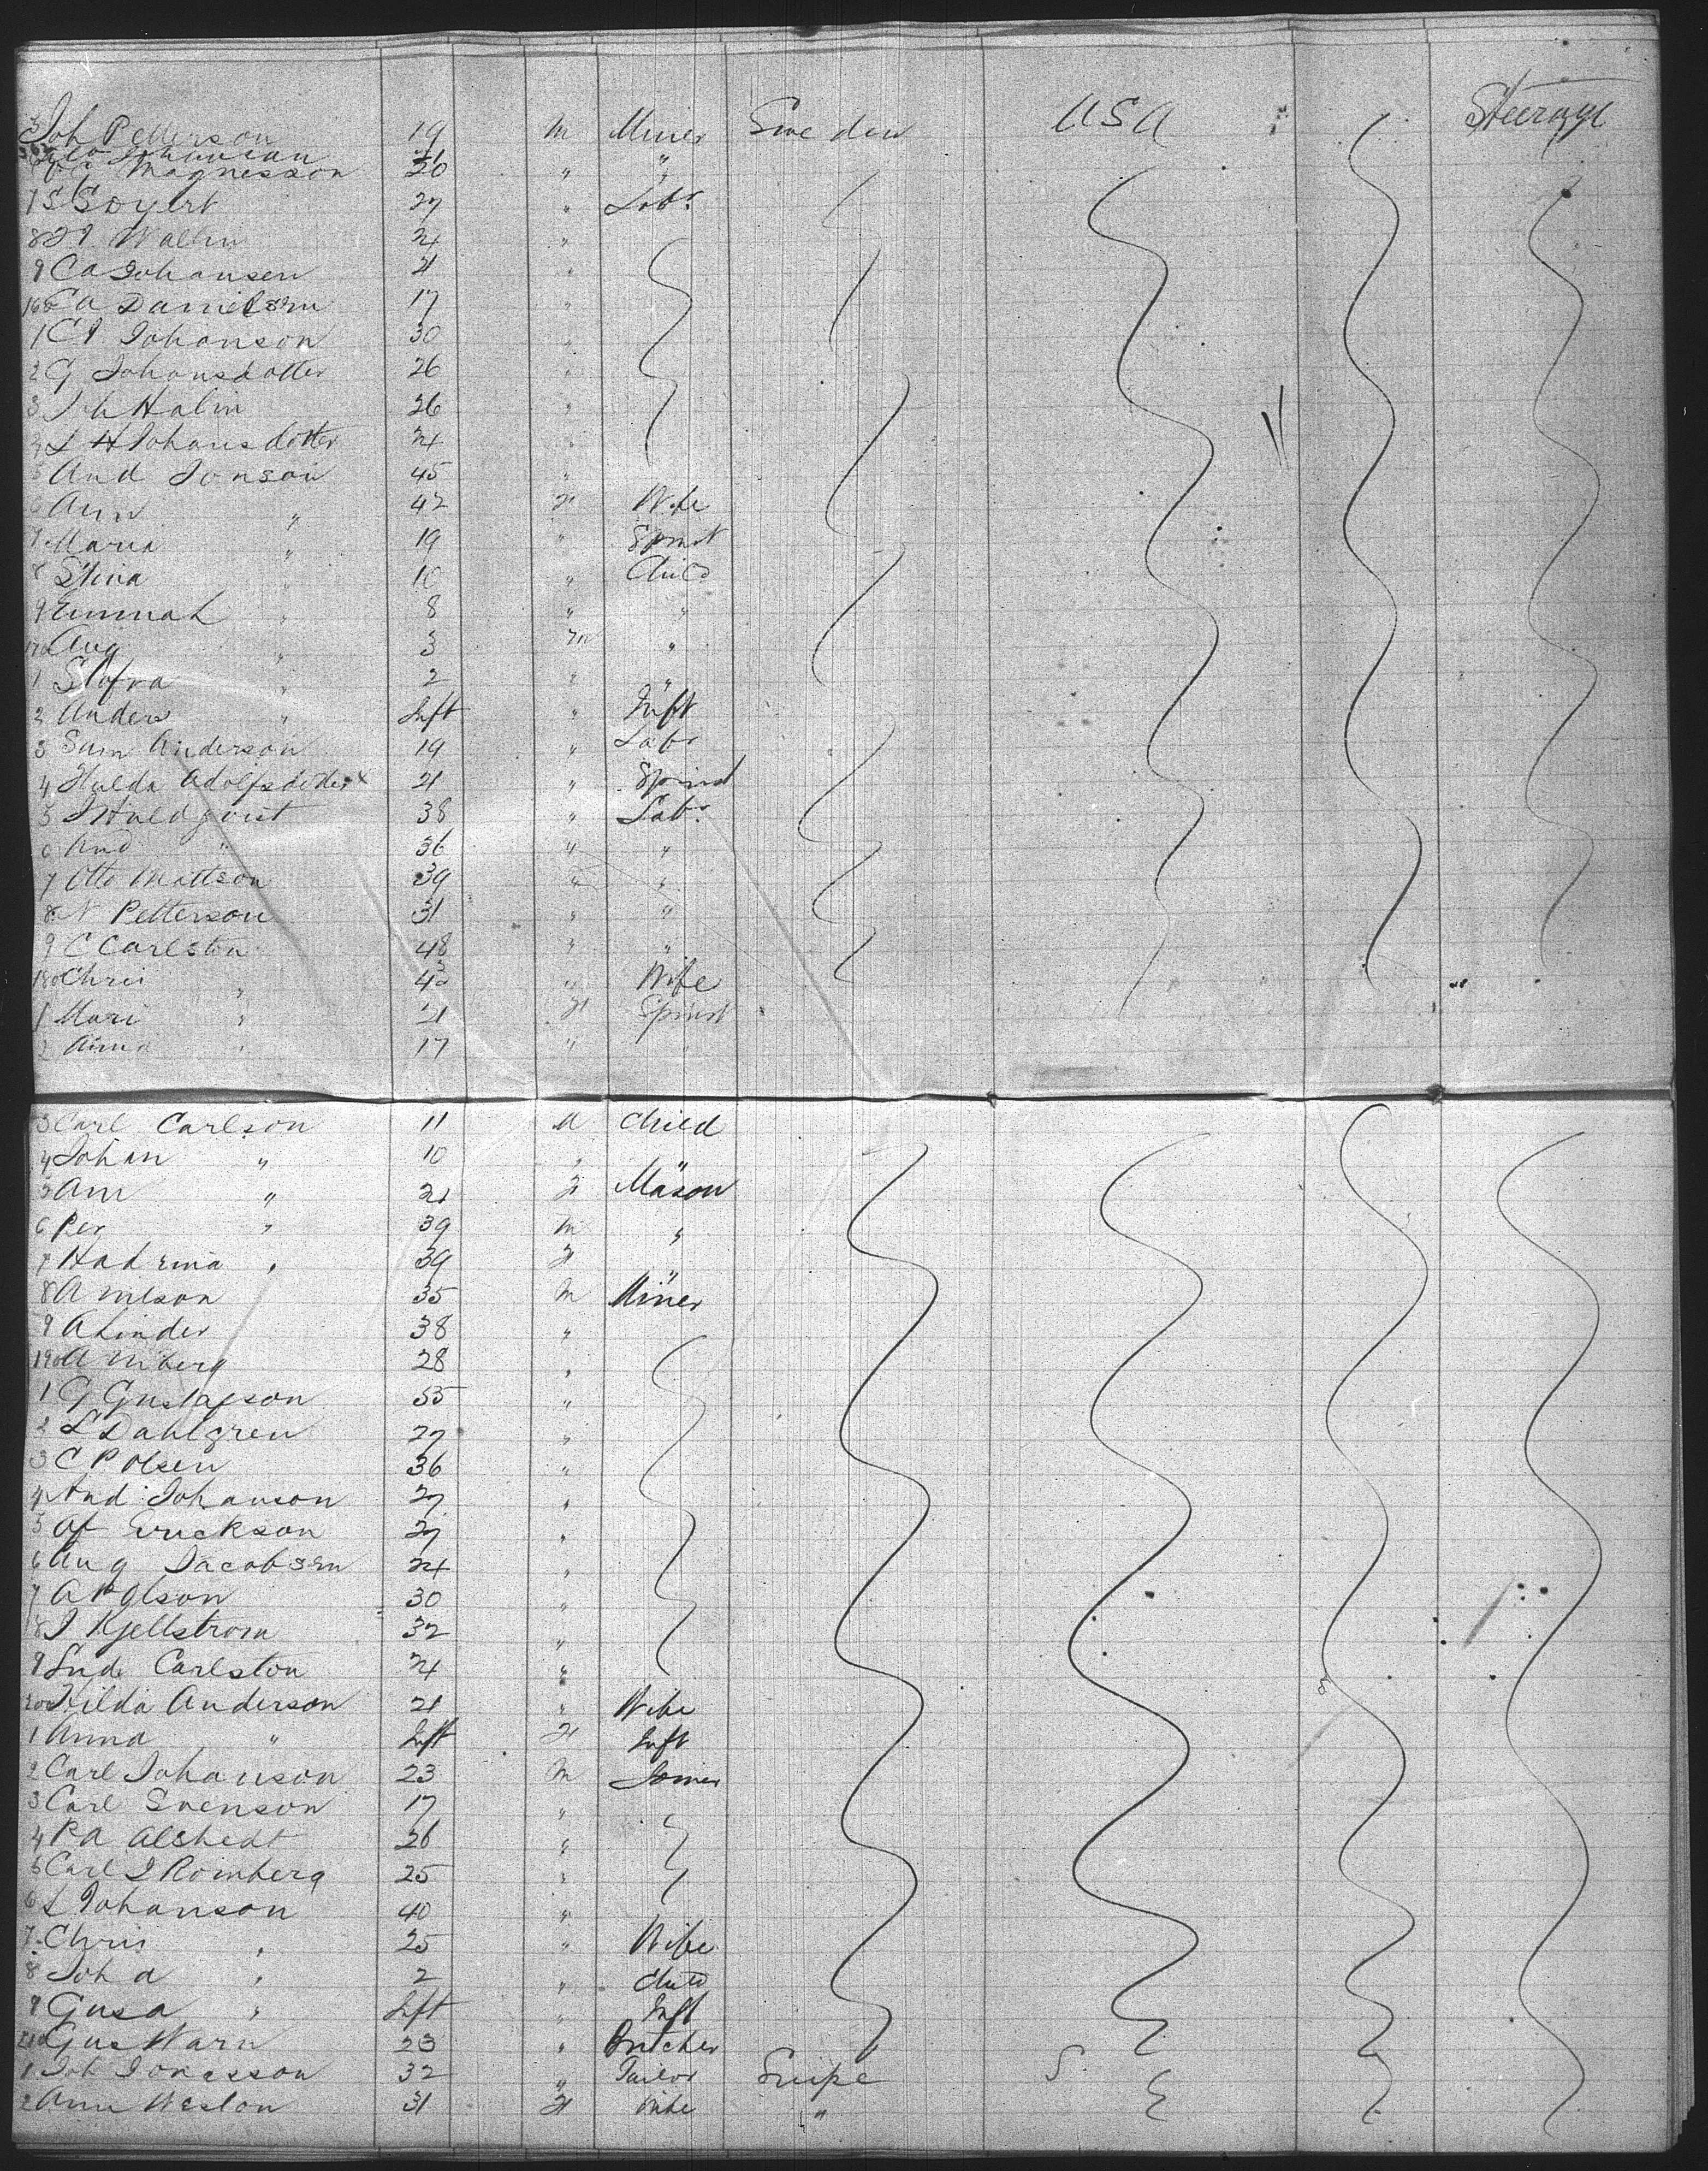 Joh Petterson 19 m Miner Sweden USA Steerage
21 "
Magnesson 20 " "
7 S 27 " Labr
8 Wallin 24 "
9 C A Johansen 21 "
160 C A Danielson 17 "
1 C J Johanson 30 "
2 G Johansdotter 26 "
3 Joh Halin 26 "
4 L H Johansdotter 24 "
5 And Jonson 45 "
6 Ann " 42 F Wife
7 Maria " 19 " Spinst
8 Stina " 10 " Child
9 Emmah " 8 " "
170 Aug " 3 m "
1 " 2 " "
2 Anders " Inft " Inft
3 Sam Anderson 19 " Labr
4 Hulda Adolfsdotter x 21 " Spinst
5 J Huldqvist 38 " Labr
6 And " 36 " "
7 Otto Mattson 39 " "
8 N Petterson 31 " "
9 C Carlston 48 " "
180 Chris " 43 " Wife
1 Mari " 21 F Spinst
2 Anna " 17 "
3 Carl Carlson 11 M Child
4 Johan " 10 " "
5 Ann " 21 F Mason
6 Per " 39 m "
7 " 39 F "
8 A Nilson 35 M Miner
9 A Linder 38 "
190 A 28 "
1 G Gustafson 55 "
2 L Dahlgren 27 "
3 C P Olsen 36 "
4 And Johanson 27 "
5 Af Erickson 27 "
6 Aug Jacobsen 24 "
7 A P Olson 30 "
8 J Kjellstrom 32 "
9 Lud Carlston 24 "
200 Hilda Anderson 21 " Wife
1 Anna " Inft F Inft
2 Carl Johanson 23 M Joiner
3 Carl Svenson 17 "
4 P A Alshedt 26 "
5 Carl J Romberg 25 "
6 L Johanson 40 "
7 Chris " 25 " Wife
8 Joh a " 2 " Child
9 Gusa " Inft " Inft
210 Gus Warn 23 " Butcher
1 Joh Jonasson 32 " Tailor S
2 Ann Weslon 31 F Wife "